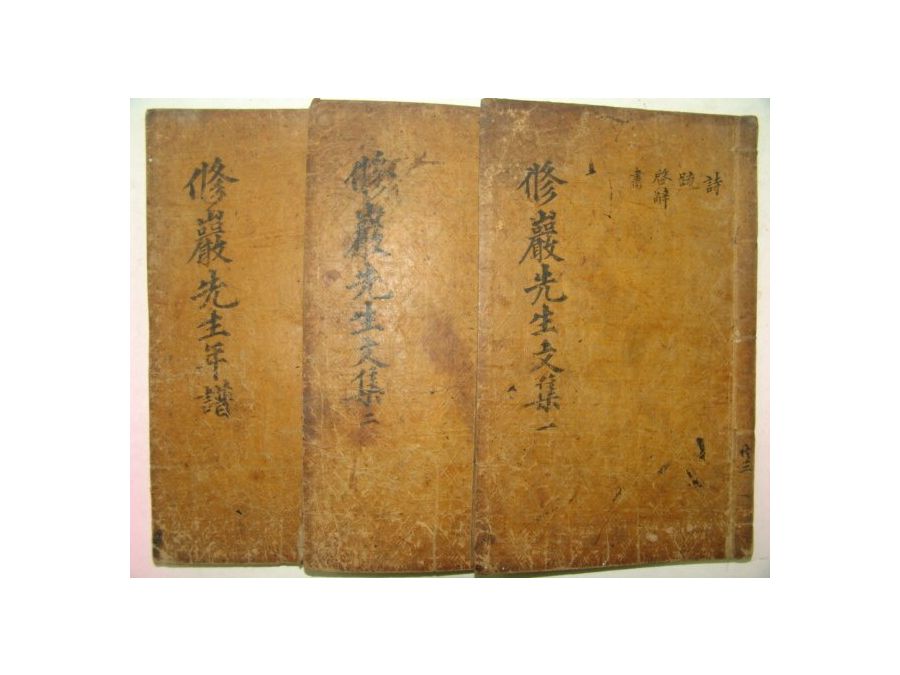 詩
疏
啓辭
書
修巖先生文集一
修巖先生文集二
修巖先生年譜